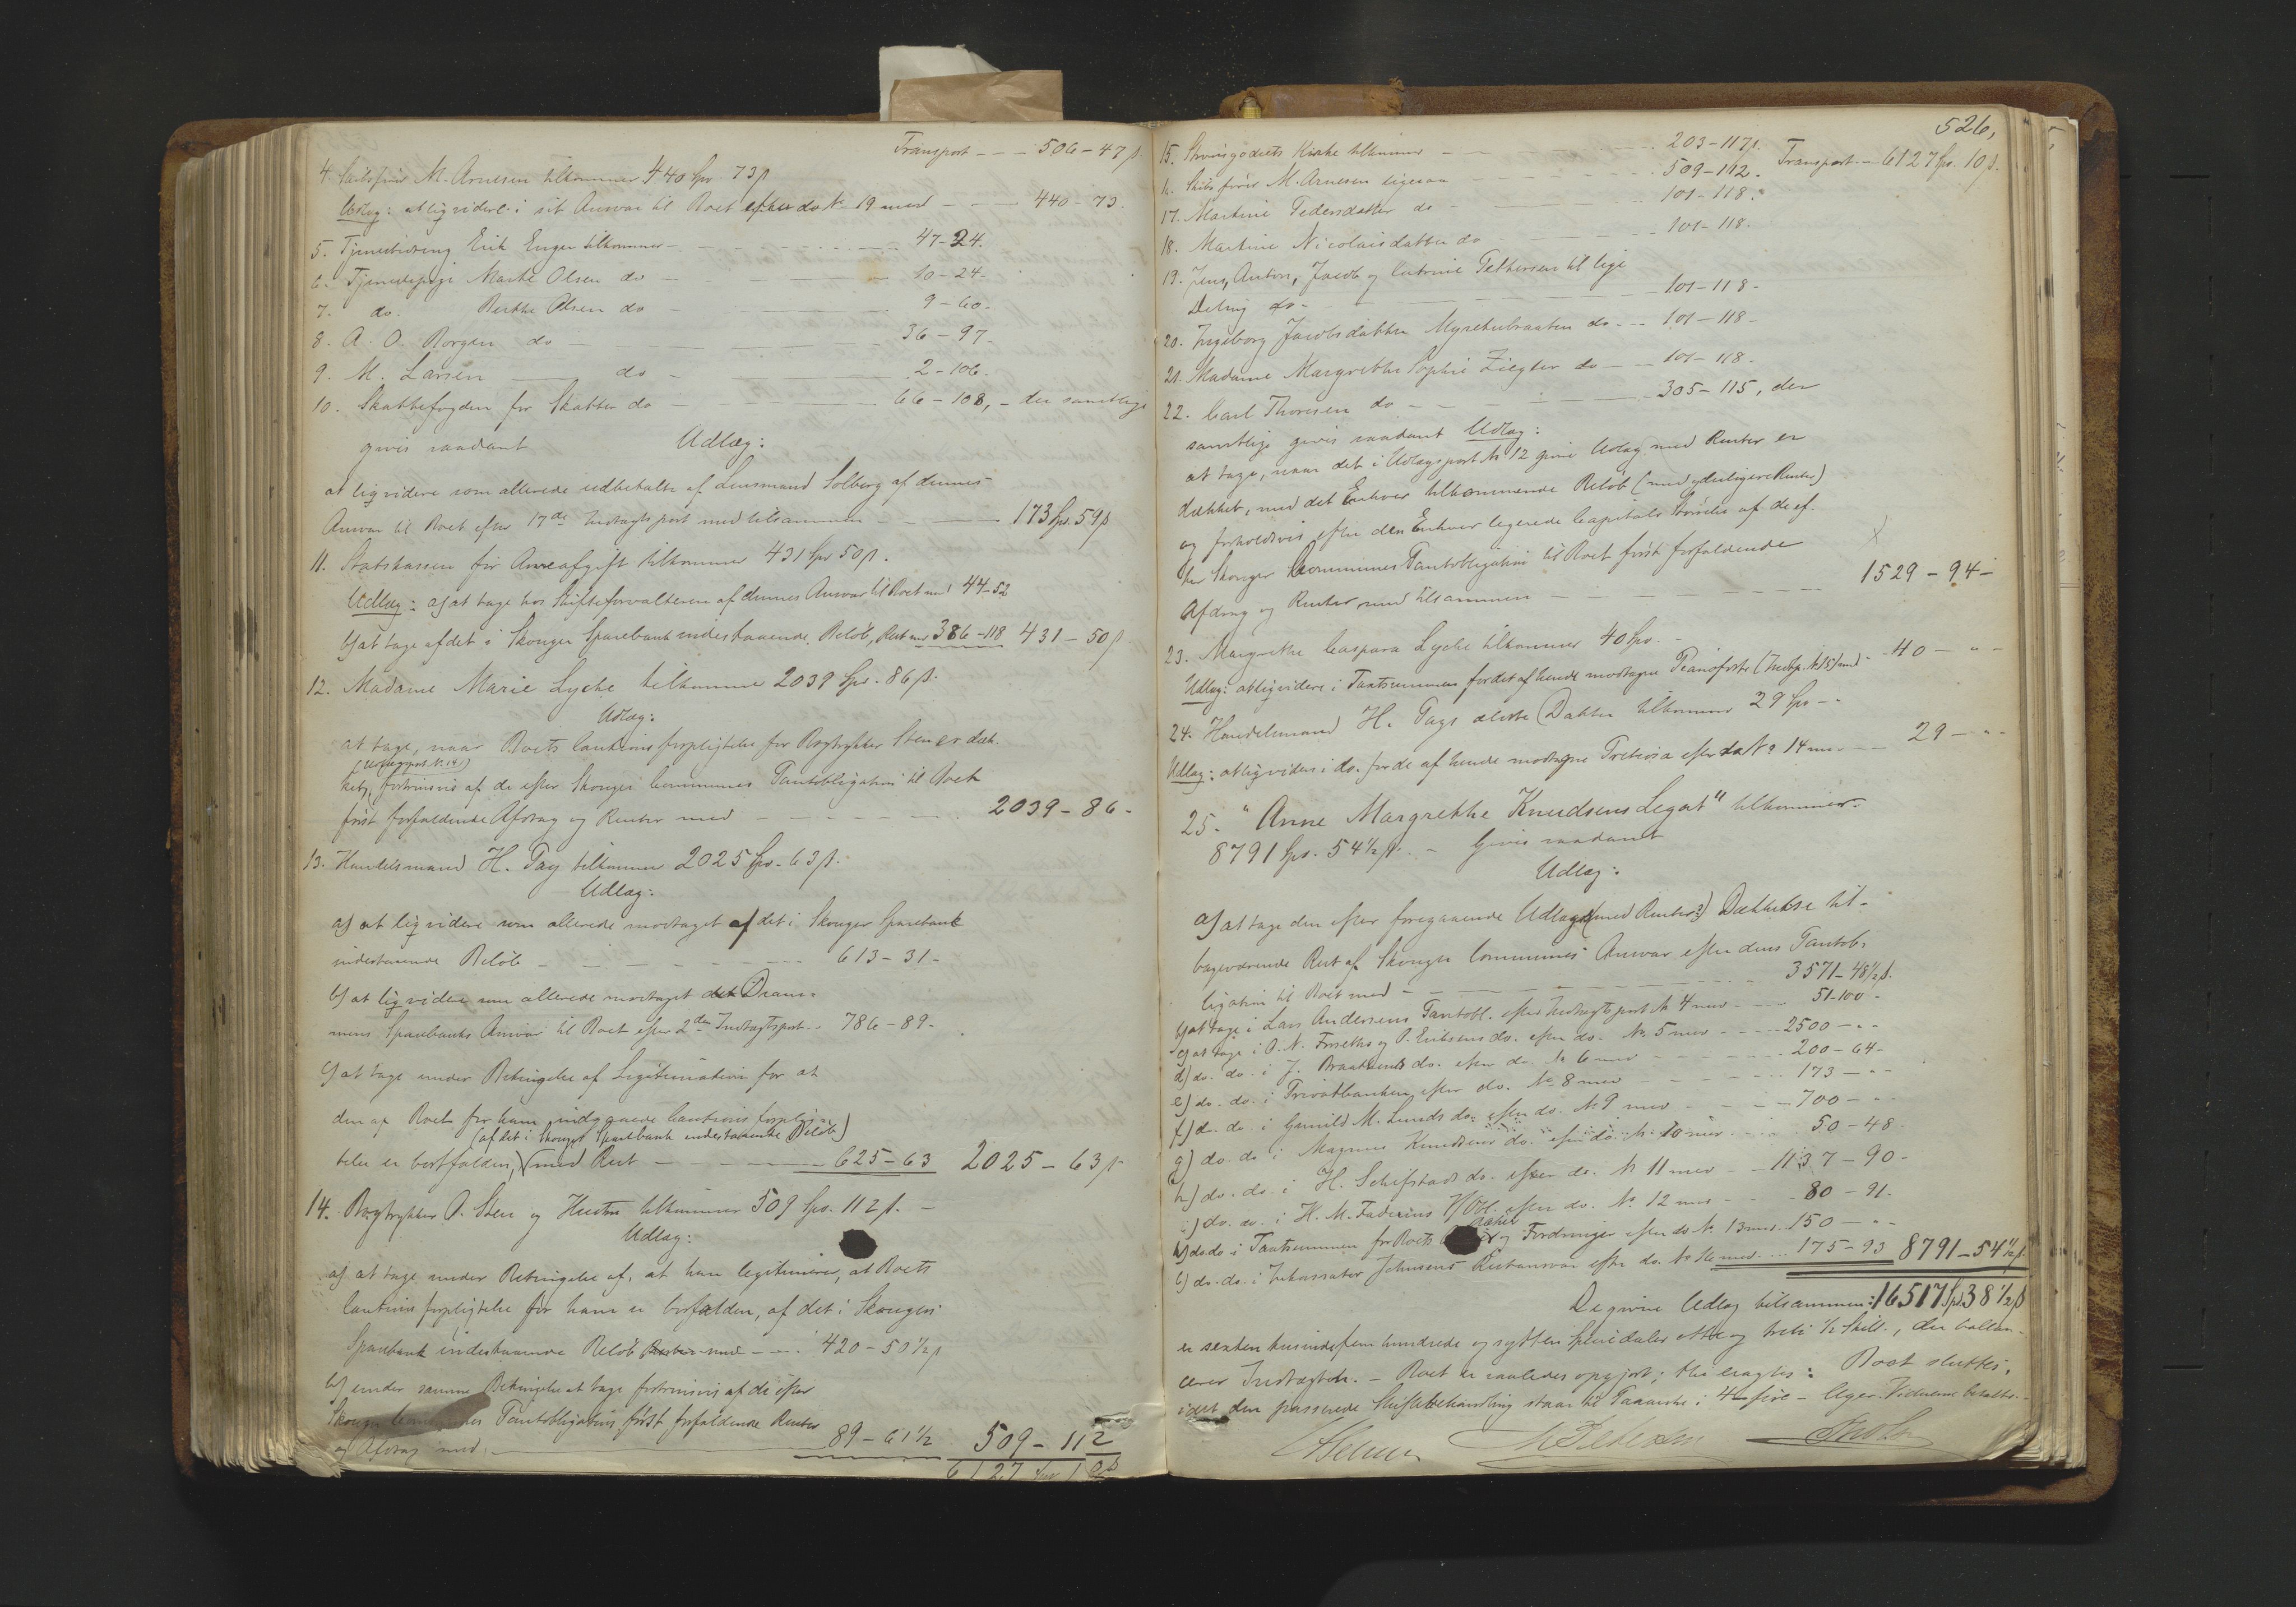 Transport - - - 506 - 47 ß.
4. Skibsfører M. Arnesen tilkommer 440 Spd. 73 ß
Udlæg: at liqvidere i sit Ansvar til Boet efter do No 19 med - - - 440 - 73.
5. Tjenestedreng Erik Enger tilkommer - - - 47 - 24.
6. Tjenestepige Marthe Olsen do - - - 10 - 24 -
7. do. Berthe Olsen do - - - 9 - 60 -
8. A. O. Borgen do - - - 36 - 97 -
9. M. Larsen - do - - - 2 - 106.
10. Skattefogden for Skatter do - - - 66 - 108, - der samtlige
gives saadant Udlæg:
at liqvidere som allerede udbetalte af Lensmand Solberg af dennes
Ansvar til Boet efter 17de Indtægtspost med tilsammen - - - 173 Spd. 59 ß
11. Statskassen for Arveafgift tilkommer 431 Spd 50 ß.
Udlæg: a) at tage hos Skifteforvalteren af dennes Ansvar til Boet med 44 - 52
b) at tage af det i Skouger Sparebank indestaaende Beløb, Rest med 386 - 118 431 - 50 ß
12. Madame Marie Lyche tilkommer 2039 Spd. 86 ß.
Udlæg:
at tage, naar Boets Cautionsforpligtelse for Bogtrykker Steen er dæk-
(Udlægspost No. 14)
ket, fortrinsvis af de efter Skouger Communes Pantobligation til Boet
først forfaldende Afdrag og Renter med - - - 2039 - 86 -
13. Handelsmand H. Pay tilkommer 2025 Spd. 63 ß.
Udlæg:
a) at liqvidere som allerede modtaget af det i Skouger Sparebank
indestaaende Beløb - - - 613 - 31 -
b) at liqvidere som allerede modtaget det Dram-
mens Sparebanks Ansvar til Boet efter 2den Indtægtspost - - 786 - 89 -
c) at tage under Betingelse af Legitimation for at
den af Boet for ham indgaaede Cautionsforplig-
(af det i Skouger Sparebank indestaaende Beløb)
telse er bortfalden, med Rest - - - 625 - 63 2025 - 63 ß
14. Bogtrykker P. Steen og Hustru tilkommer 509 Spd. 112 ß. -
Udlæg:
a) at tage under Betingelse af, at han legitimerer, at Boets
Cautionsforpligtelse for ham er bortfalden, af det i Skouger
Sparebank indestaaende Beløb med - - - 420 - 50 1/2 ß
b) under samme Betingelse at tage fortrinsvis af de efter
Skouger Communes Pantobligation først forfaldende Renter
og Afdrag med - - - 89 - 61 1/2 509 - 112
6127 Spd 10 ß
526,
15. Strømsgodsets Kirke tilkommer - - - 203 - 117 ß. Transport - 6127 Spd. 10 ß.
16. Skibsfører M. Arnesen ligesaa - - - 509 - 112.
17. Martine Pedersdatter do - - - 101 - 118.
18. Martine Nicolaisdatter do - - - 101 - 118 -
19. Jens, Anton, Jacob og Catrine Pettersen til lige
Deling do - - - 101 - 118 -
20. Ingeborg Jacobsdatter Myrehulbraaten do - - 101 - 118 -
21. Madame Margrethe Sophie Ziegler do - - 101 - 118 -
22. Carl Thoresen do - - - 305 - 115, der
samtlige gives saadant Udlæg:
at tage, naar det i Udlægspost No 12 givne Udlæg med Renter er
dækket, med det Enhver tilkommende Beløb (med yderligere Renter)
og forholdsvis efter den Enhver legerede Capitals Størrelse af de ef-
ter Skouger Communes Pantobligation til Boet først forfaldende
Afdrag og Renter med tilsammen - - - 1529 - 94 -
23. Margrethe Caspara Lyche tilkommer 40 Spd. -
Udlæg: at liqvidere i Pantsummen for det af hende modtagne Pianoforte (Indtp. No 15) med - 40 - " -
24. Handelsmand H. Pays ældste Datter tilkommer 29 Spd - -
Udlæg: at liqvidere i do. for de af hende modtagne Pretiosa efter do No 14 med - - 29 - " -
25. "Anne Margrethe Knudsens Legat" tilkommer
8791 Spd. 54 1/2 ß. - Gives saadant
Udlæg:
a) at tage den efter foregaaende Udlægs (med Renter) Dækkelse til-
bageværende Rest af Skouger Communes Ansvar efter dens Pantob-
ligation til Boet med - - - 3571 - 48 1/2 ß.
b) at tage i Lars Andersens Pantobl. efter Indtægtspost No 4 med - - - 51 - 100 -
c) at tage i O. N. Fosseths og P. Eriksens do. efter do. No 5 med - - - 2500 - " -
d) do. do. i J. Braatens do. efter do No 6 med - - - 200 - 64 -
e) do. do. i Privatbanken efter do. No 8 med - - - 173 - " -
f) do. do i Gunild M. Lunds do. efter do. No 9 med - - - 700 - " -
g) do. do i Magnus Knudsens do. efter do. No 10 med - - - 50 - 48 -
h) do. do. i H. Schifstads do. efter do. No 11 med - - 1137 - 90 -
i) do. do. i H. M. Faderins do. efter do. No. 12 med - - - 80 - 91 -
k) do do i Pantsummen for Boets og Fordringer efter do No 13 med 150 - " -
l) do. do. i Inkassator Johnsens Restansvar efter do. No 16 med - - - 175 - 93 8791 - 54 1/2 ß.
De givne Udlæg tilsammen: 16517 Spd 38 1/2 ß
er sexten tusinde fem hundrede og sytten Speciedaler otte og treti 1/2 Skill., der ballan-
cerer Indtægten. - Boet er saaledes opgjort; thi eragtes: Boet sluttes,
idet den passerede Skiftebehandling staar til Paaanke i 4 - fire - Uger. Vidnerne betalte -